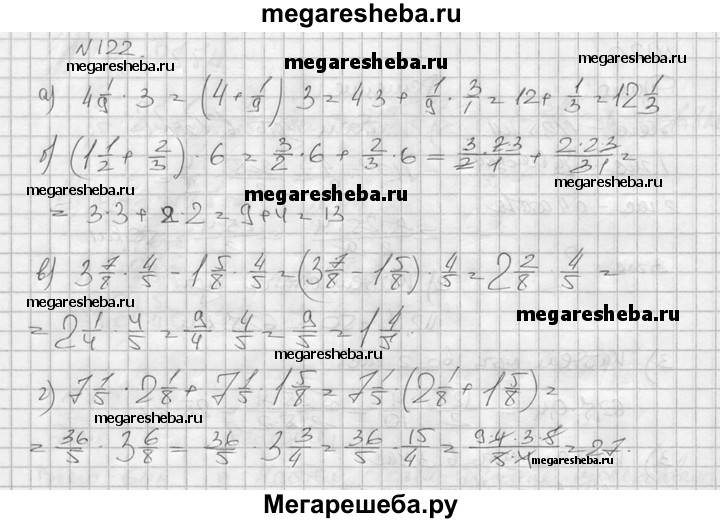 megaresheba.ru
N 122.
megaresheba.ru megaresheba.ru megaresheba.ru
а) 4 1/9 · 3 = (4 + 1/9) 3 = 4·3 + 1/9 · 3/1 = 12 + 1/3 = 12 1/3
б) (1 1/2 + 2/3) · 6 = 3/2 · 6 + 2/3 · 6 = 3·2·3/2·1 + 2·2·3/3·1 =
megaresheba.ru megaresheba.ru megaresheba.ru
= 3·3 + 2·2 = 9 + 4 = 13
в) 3 7/8 · 4/5 - 1 5/8 · 4/5 = (3 7/8 - 1 5/8) · 4/5 = 2 2/8 · 4/5 =
megaresheba.ru megaresheba.ru
= 2 1/4 · 4/5 = 9/4 · 4/5 = 9/5 = 1 4/5.
megaresheba.ru
г) 7 1/5 · 2 1/8 + 7 1/5 · 1 5/8 = 7 1/5 · (2 1/8 + 1 5/8) =
megaresheba.ru
= 36/5 · 3 6/8 = 36/5 · 3 3/4 = 36/5 · 15/4 = 9·4·3·5/5·4 = 27.
megaresheba.ru
Мегарешеба.ру